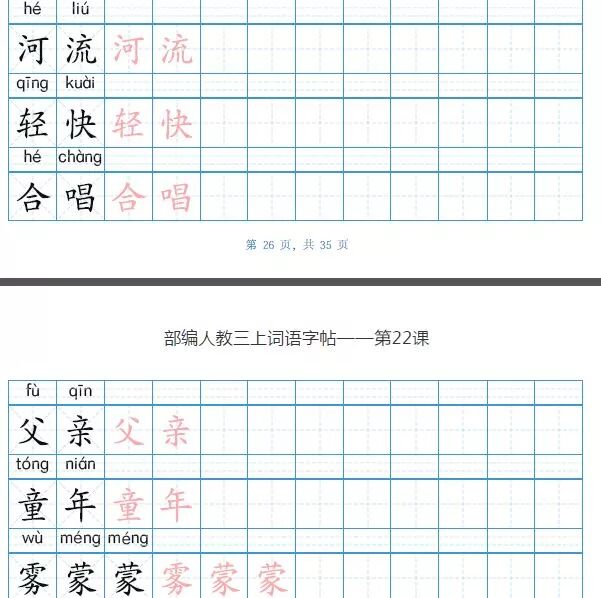 hé liú
河流河流
qīng kuài
轻快轻快
hé chàng
合唱合唱
第 26 页，共 35 页
部编人教三上词语字帖——第22课
fù qīn
父亲父亲
tóng nián
童年童年
wù méng méng
雾蒙蒙雾蒙蒙